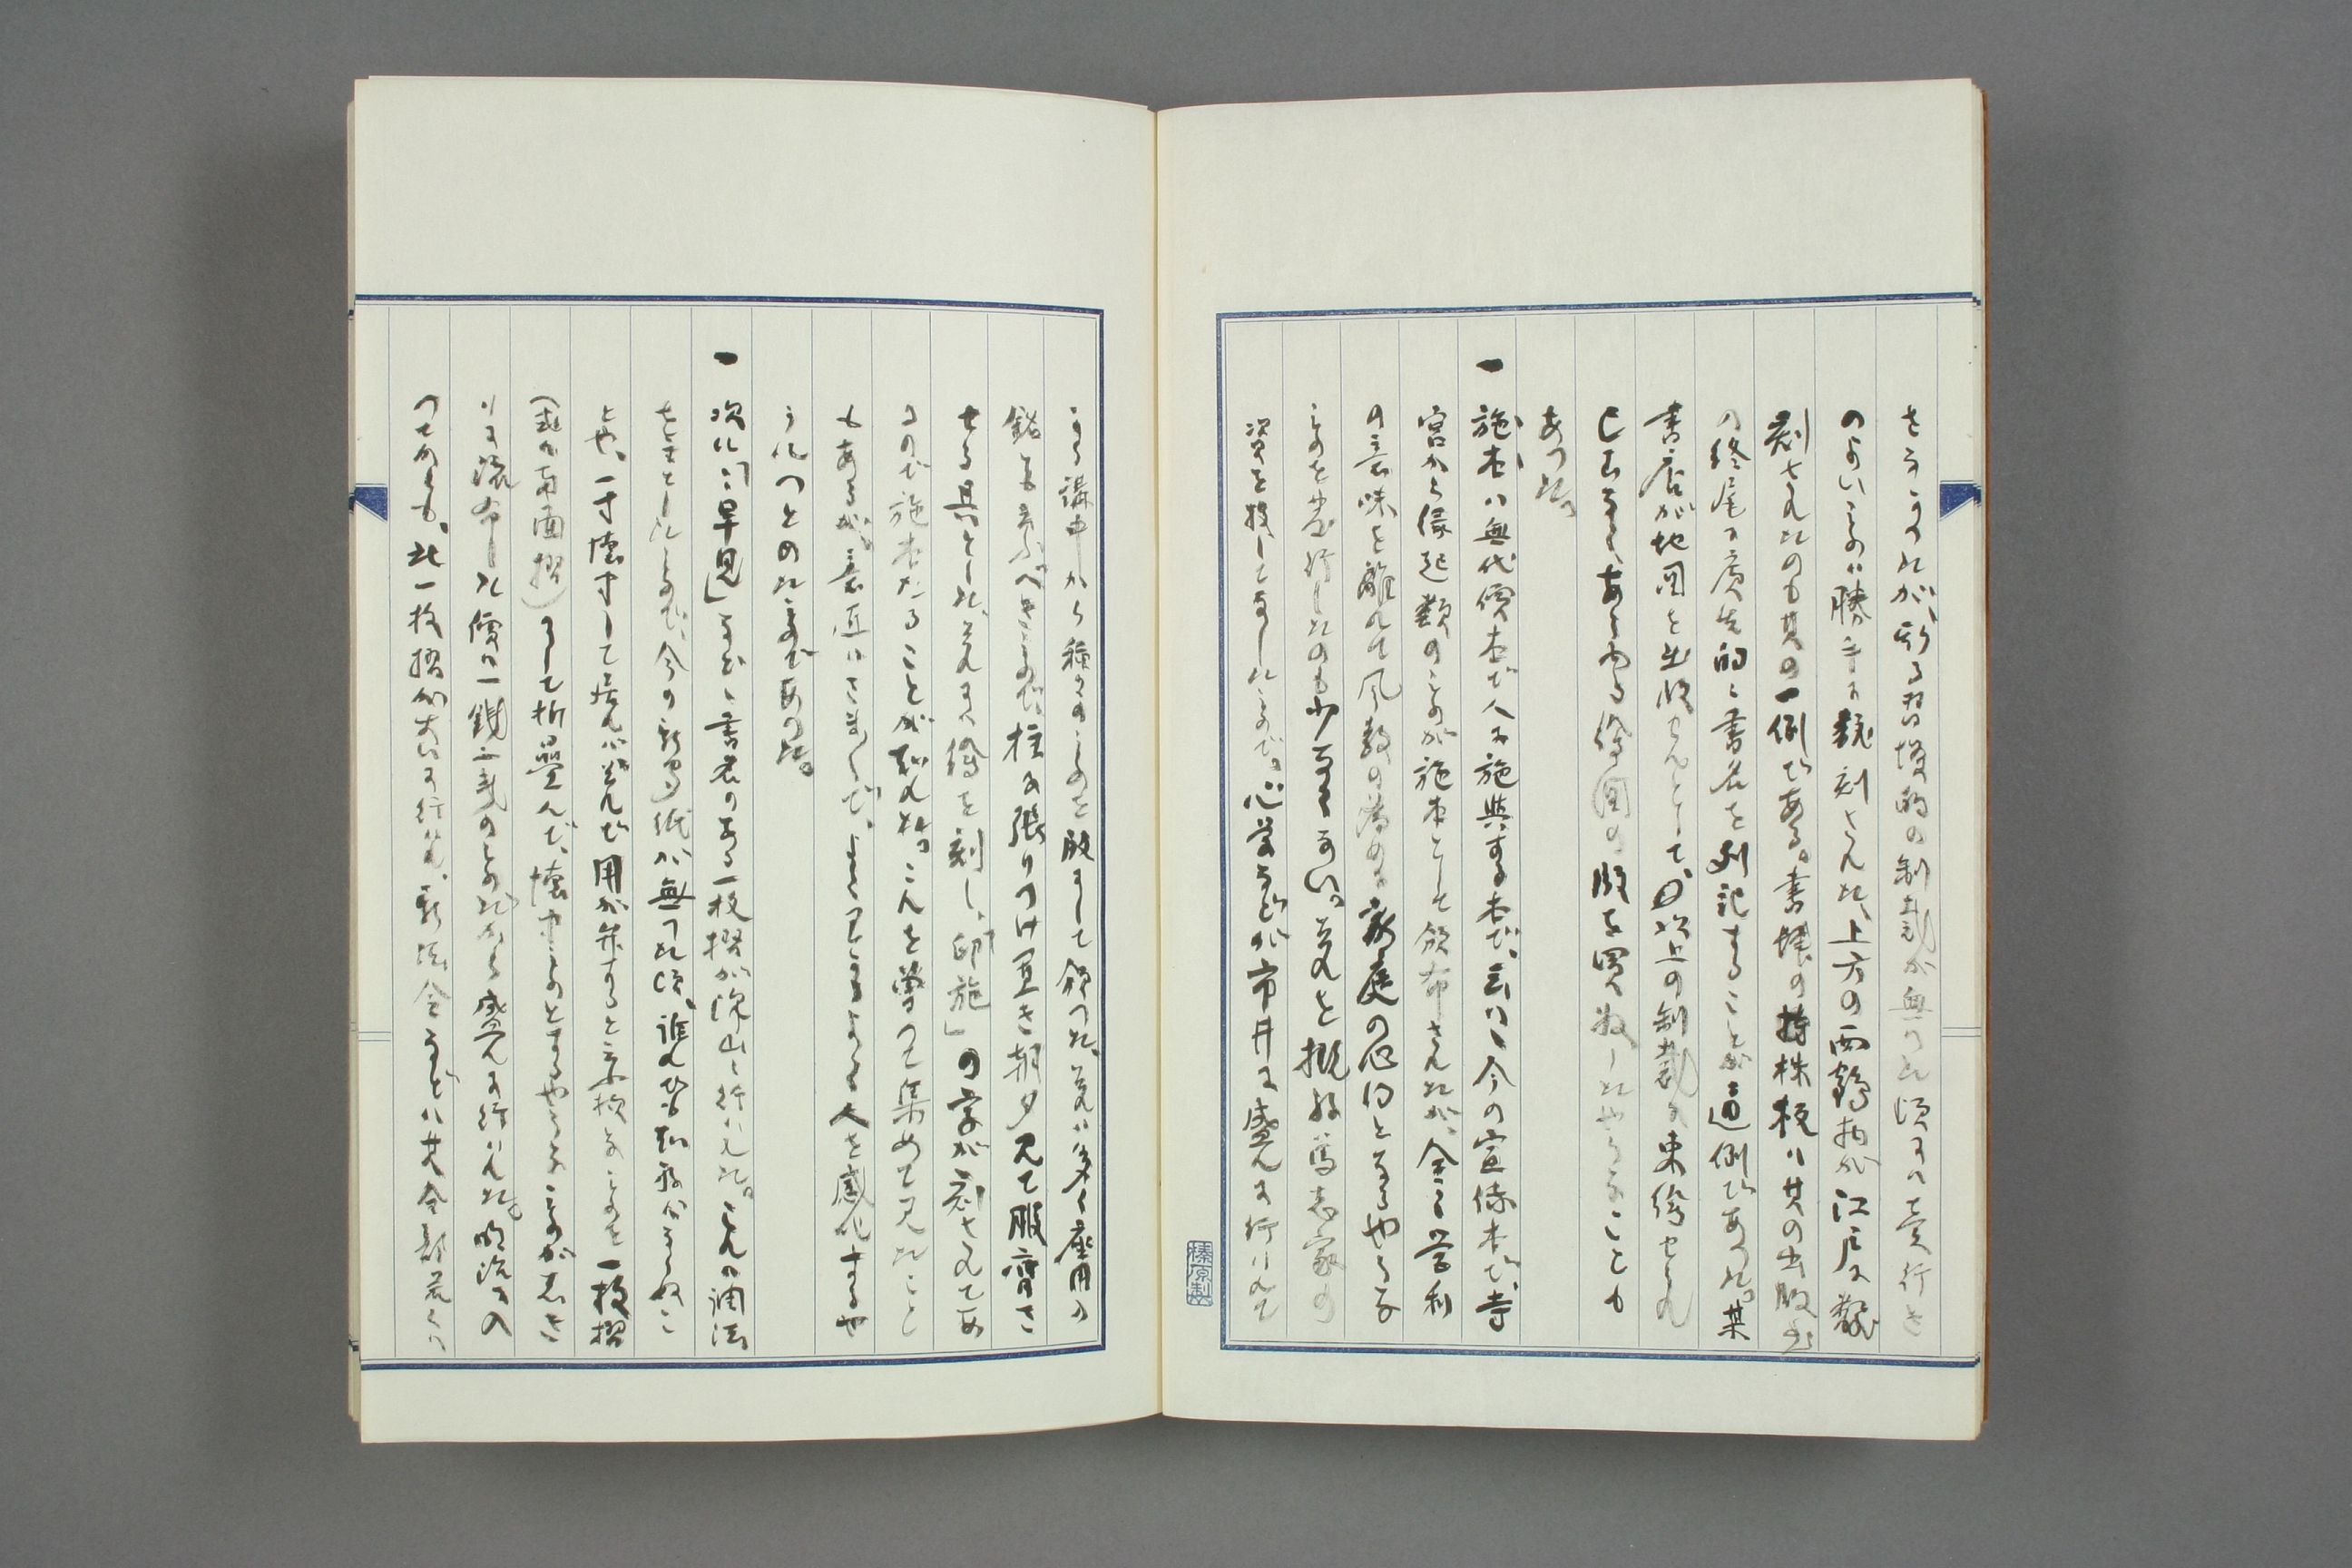 さうなつたが、斯る習慣的の制裁が無つた頃には売行き
のよいものは勝手に飜刻された、上方の西鶴物が江戸に飜
刻されたのも其の一例である。書肆の持株板は其の出版書
の終尾に広告的に書名を列記することが通例であつた。某
書店が地図を出版せんとして、以上の制裁に束縛せられ
已むなくあらゆる絵図の版を買
あつた。
一 施本は無代價本で人に施與する本だ、云はゝ今の宣伝本だ、寺
宮から縁起類のものが施本として頒布されたが、全く営利
の意味を離れて風教の為め、家庭の心得となるやうな
ものを発行したのも少くない。それを概ね篤志家の
資を投じてなしたものだ。心学などが市井に盛んに行はれて
ゐる講中から種々のものを版にして頒つた、それは多く座用の
銘とも云ふべきもので、柱に張りつけ置き朝夕見て服膺さ
せる具とした、それに繪を刻し、「印施」の字が刻されてあ
るので施本たることが知れた。これを嘗つて集めて見たこと
もあるが、意匠はさまざまで、よく見るよくよく人を感化するや
うにつとめたものであつた。
一 次に「早見」などゝ書名のある一枚摺が沢山に行はれた。これは調法
を主としたもので、今の新聞紙が無つた頃、誰れでも知ねばならぬこ
とや、一寸懐中して居れば、それで用が弁ずると云ふ様なものを一枚摺
(或は両面摺)にして折畳んで、懐中ものとするやうなものが大き
に流布した價は一銭二銭のものだから盛んに行はれた。明治に入
つてからも、此一枚摺が大いに行はれ、新法令などは其全部若くは
榛原製